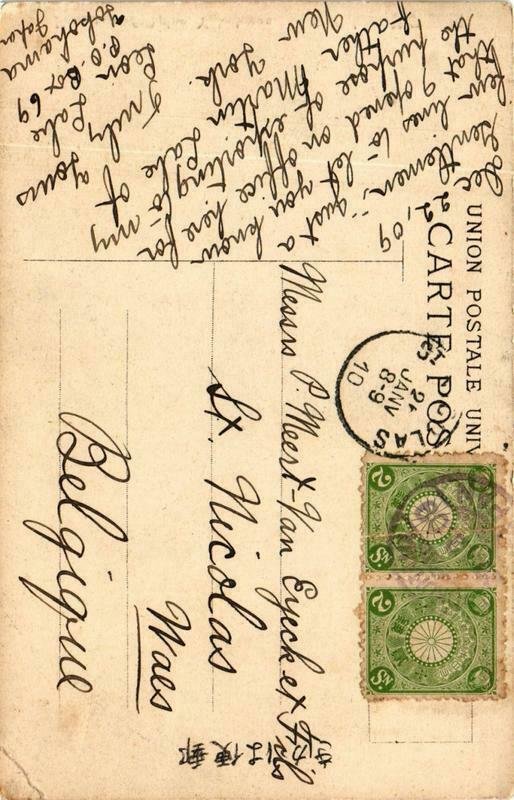 UNION POSTALE UNIV
CARTE POS
Dec 22 -09
Gentlemen:- just a
few lines to let you know
that I opened an office here for
the purpose of exporting to my
father Martin Lake of
New York.
Yours
Truly
Leon Lake
P.O. Box 69
Yokohama
Japan
Messrs P. Meert-Van Eyeck et Fils
St. Nicolas
Waes
Belgique
LAS
21
JANV
8-9
10
2 Sn.
2 Sn.
郵便はがき